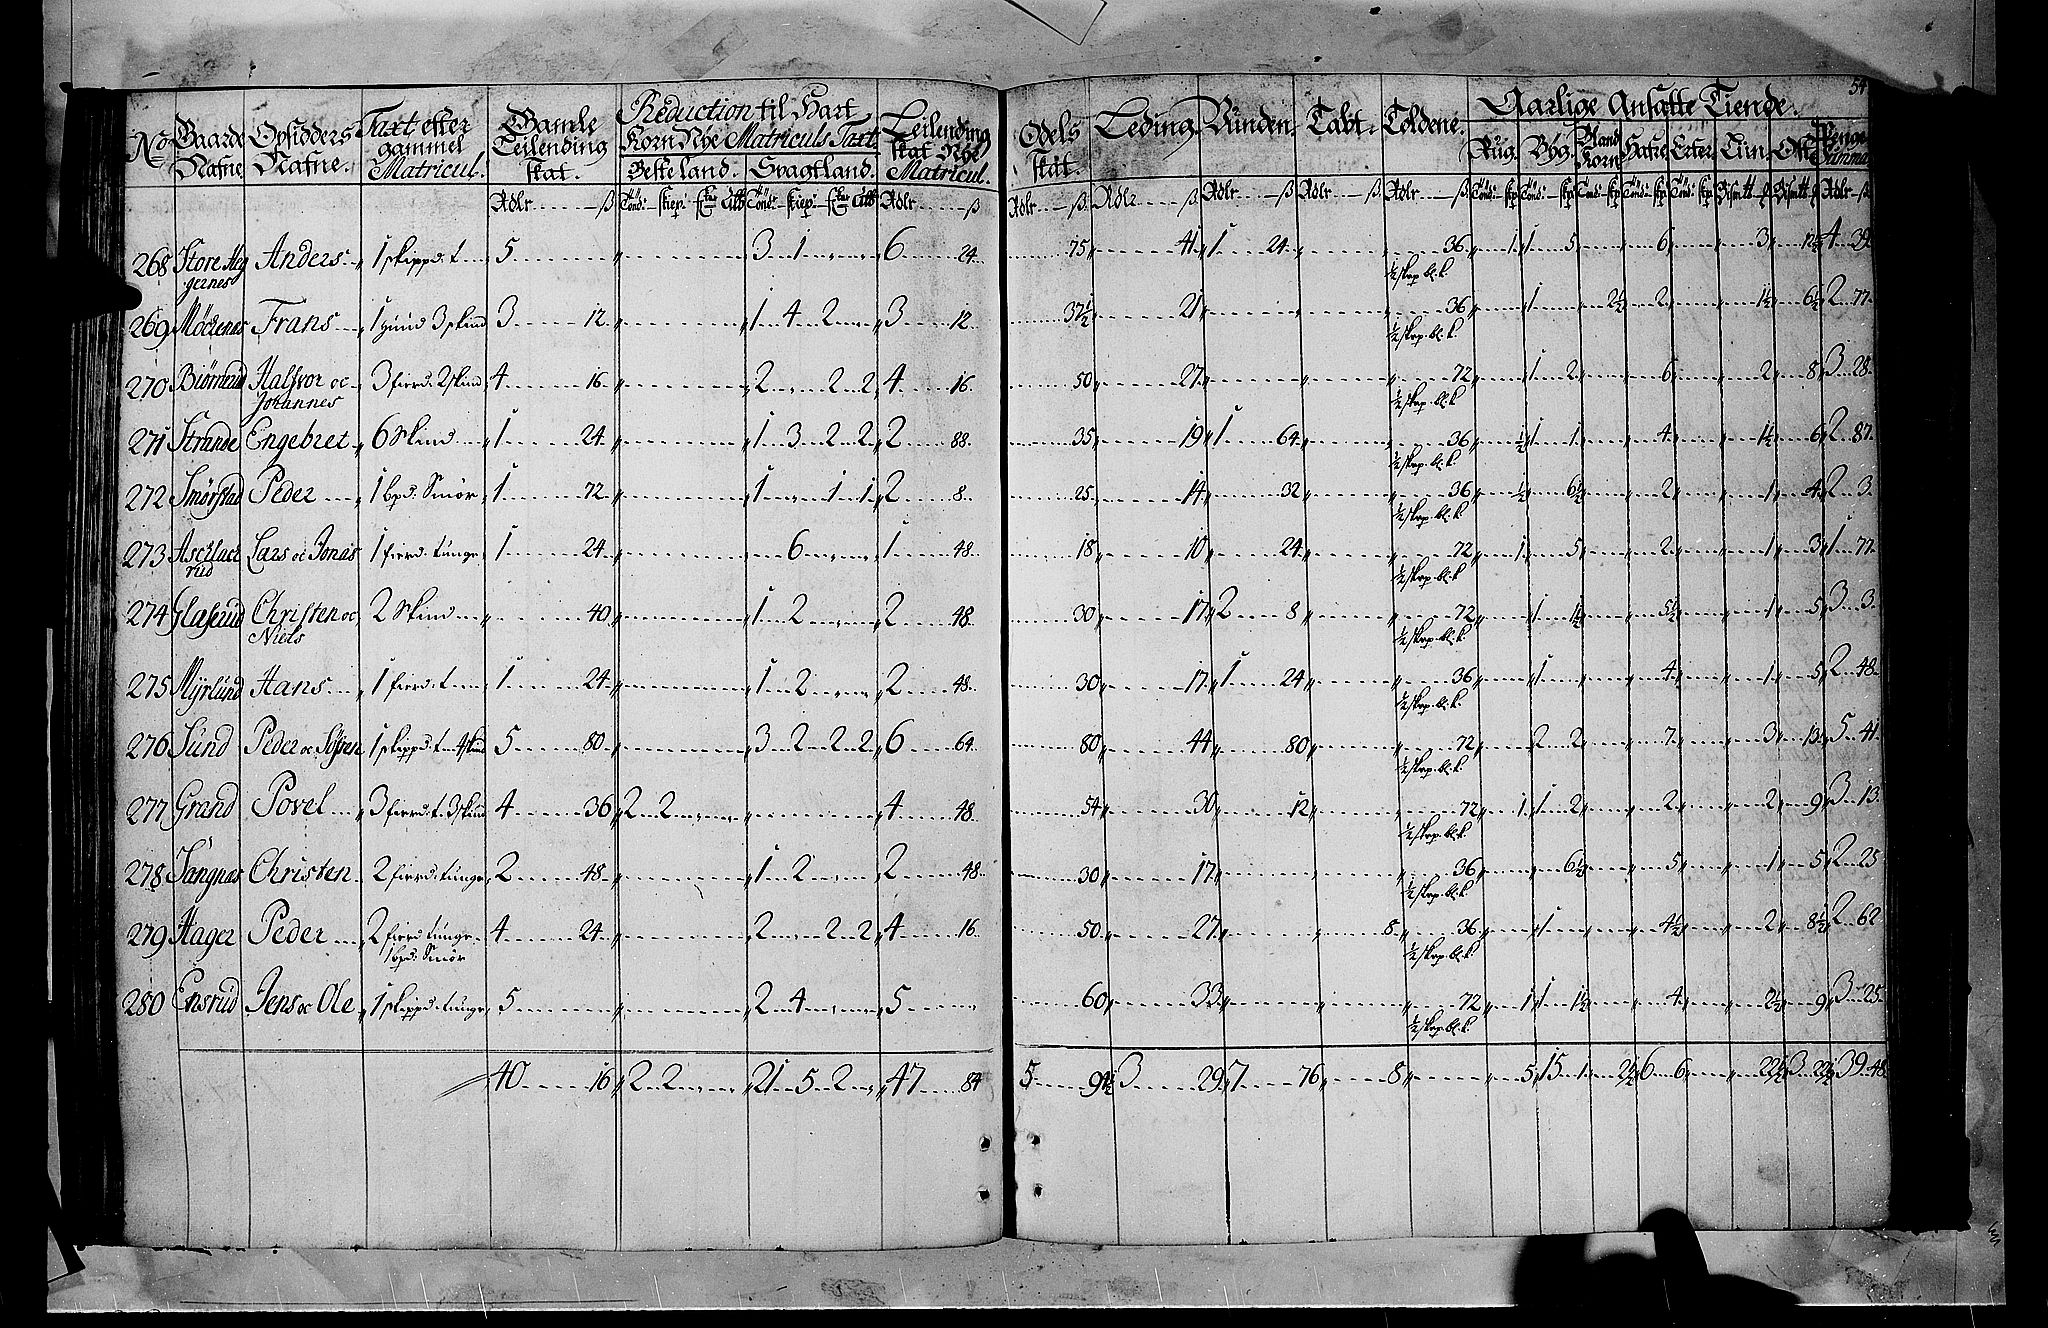 54
No Gaarde Nafne. Opsidders Nafne. Taxt efter gammel Matricul. Gamle Leilending skat. Reduction til Hart Korn Nÿe Matriculs Taxt. Beste land. Svagt land. Leilending skat Nÿe Matricul. Odels skat. Leding. Vunden. Tabt. Toldene. Aarlige Ansatte Tiende. Rug. Byg. Bland Korn. Hafre. Erter. Penge Summa
268 Store Anders 1 skippd: t 5 3 1 6 24 75 41 1 24 36 1 1 5 6 3 12½ 4 39
gernes ½ skrp. bl. k.
269 Frans 1 3 skind 3 12 1 4 2 3 12 37½ 21 36 1 2½ 2 1½ 6½ 2 77
½ skrp. bl. k.
270 Biørnerud Halfvor oc 3 fierd: 2 skind 4 16 2 2 2 4 16 50 27 72 1 2 6 2 8 3 28
Johannes ½ skrp. bl. k.
271 Strande Engebret 6 Skind 1 24 1 3 2 2 2 88 35 19 1 64 36 ½ 1 1 4 1½ 6 2 87
½ skrp. bl. k.
272 Smørstad Peder 1 bpd: Smør 1 72 1 1 1 2 8 25 14 32 36 ½ 6½ 2 1 4 2 3
½ skrp. bl. k.
273 Aschlack Lars oc Jonas 1 fierd: tunge 1 24 6 1 48 18 10 24 72 1 5 2 1 3 1 77
rud ½ skrp. bl. k.
274 Glaserud Christen oc 2 Skind 40 1 2 2 48 30 17 2 8 72 1 1½ 5½ 1 5 3 3
Niels ½ skrp. bl. k.
275 Myrlund Hans 1 fierd: t 1 24 1 2 2 48 30 17 1 24 36 1 4 1 5 2 48
½ skrp. bl. k.
276 Sund Peder oc 1 skippd: t 4 skind 5 80 3 2 2 2 6 64 80 44 80 72 2 2 7 3 13 5 41
½ skrp. bl. k.
277 Grand Povel 3 fierd: t. 3 skind 4 36 2 2 4 48 54 30 12 72 1 1 2 2 2 9 3 13
½ skrp. bl. k.
278 Tangnas Christen 2 fierd: tunge 2 48 1 2 2 48 30 17 36 6½ 5 1 5 2 25
½ skrp. bl. k.
279 Hager Peder 2 fierd tunge 4 24 2 2 2 4 16 50 27 8 36 1 4½ 2 8½ 2 62
1 bpd: Smør ½ skrp. bl. k.
280 Ensrud Jens oc Ole 1 skippd: tunge 5 2 4 5 60 33 72 1 1 1½ 4 2½ 9 3 25
½ skrp. bl. k.
40 16 2 2 21 5 2 47 84 5 94½ 3 29 7 76 8 5 15 1 2½ 6 6 22½ 3 22½ 39 48